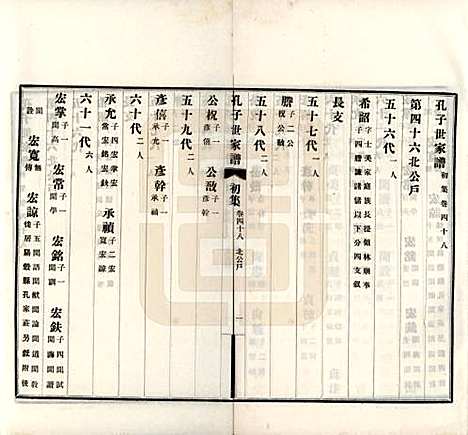 孔子世家譜 初集 卷四十八
第四十六北公戶
五十六代 一人
希韶 字士美家庭族長提領林廟事 子四謄誠諸儲以下分四支叙
長支
五十七代 一人
謄 子二公祝公敨
五十八代 二人
孔子世家譜 初集 卷四十八 北公戶 一
公祝 子一彥僖 公敨 子一彥幹
五十九代 二人
彥僖 子一承允 彥幹 子一承禎
六十代 二人
承允 子四宏掌宏常宏銘宏鈇 承禎 子二宏寬宏諒
六十一代 六人
宏掌 子一聞高 宏常 子一聞學 宏銘 子一聞劉 宏鈇 子四聞試聞誨聞譜聞
宏寬 無傳 宏諒 子五聞語聞獻聞論聞道聞教 徙居陽穀縣孔家莊另叙附後